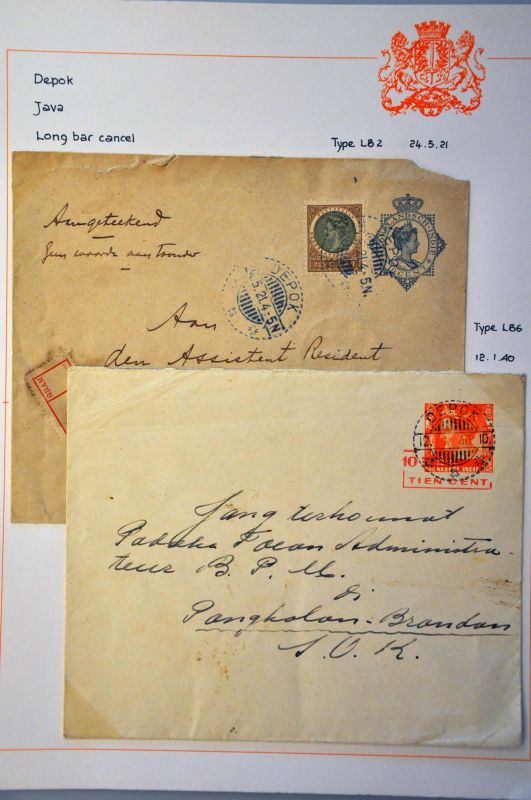 Depok
Java
Long bar cancel
Type LB2 24.5.21
Aangeteekend
Geen waarde
DEPOK
5.21.4-5N.
5.21.4-5N.
CENT
Aan
den Assistent Resident
GRAM
Type LB6
12.1.40
DEPOK
12. 10
10
TIEN CENT
Jang terhoormat
Padoeka Toean Administra-
teur B. P. M.
di
Pangkalan-Brandan
S. O. K.